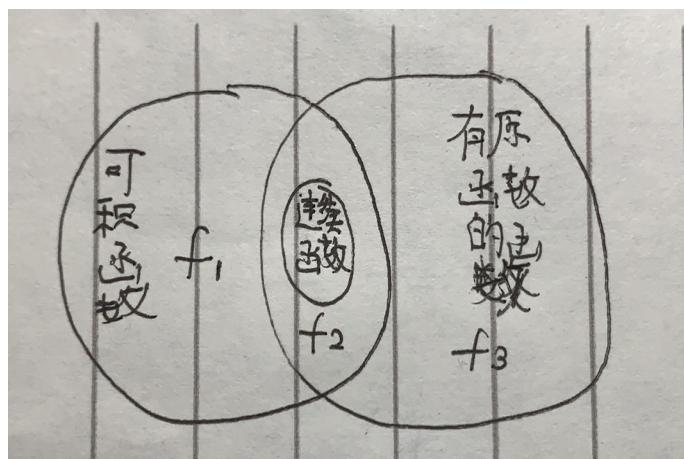 可积函数
f₁
连续
函数
f₂
有原
函数
的函
数
f₃